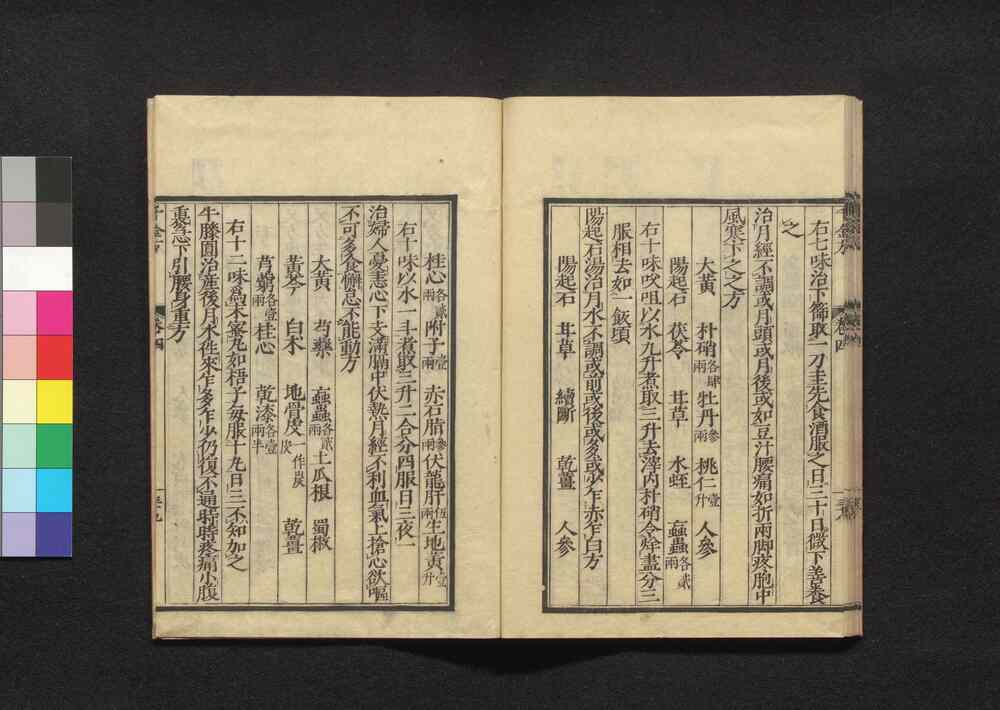 右七味治下篩取一刀圭先食酒服之日三十日微下善養
之
治月經不調或月頭或月後或如豆汁腰痛如折兩脚疼胞中
風寒下之之方
大黃 朴硝各肆兩 牡丹參兩 桃仁壹升 人參
陽起石 茯苓 甘草 水蛭 䖟蟲各貳兩
右十味㕮咀以水九升煮取三升去滓內朴硝令烊盡分三
服相去如一飯頃
陽起石湯治月水不調或前或後或多或少乍赤乍白方
陽起石 甘草 續斷 乾薑 人參
桂心各貳兩 附子壹兩 赤石脂參兩 伏龍肝伍兩 生地黃壹升
右十味以水一斗煮取三升二合分四服日三夜一
治婦人憂恚心下支滿膈中伏熱月經不利血氣上搶心欲嘔
不可多食懈怠不能動方
大黃 芍藥 䖟蟲各貳兩 土瓜根 蜀椒
黃芩 白朮 地骨皮一作炭皮 乾薑
芎藭各壹兩 桂心 乾漆各壹兩半
右十二味爲末蜜丸如梧子每服十丸日三不知加之
牛膝圓治產後月水往來乍多乍少仍復不通時時疼痛小腹
重急下引腰身重方
千金方 卷四